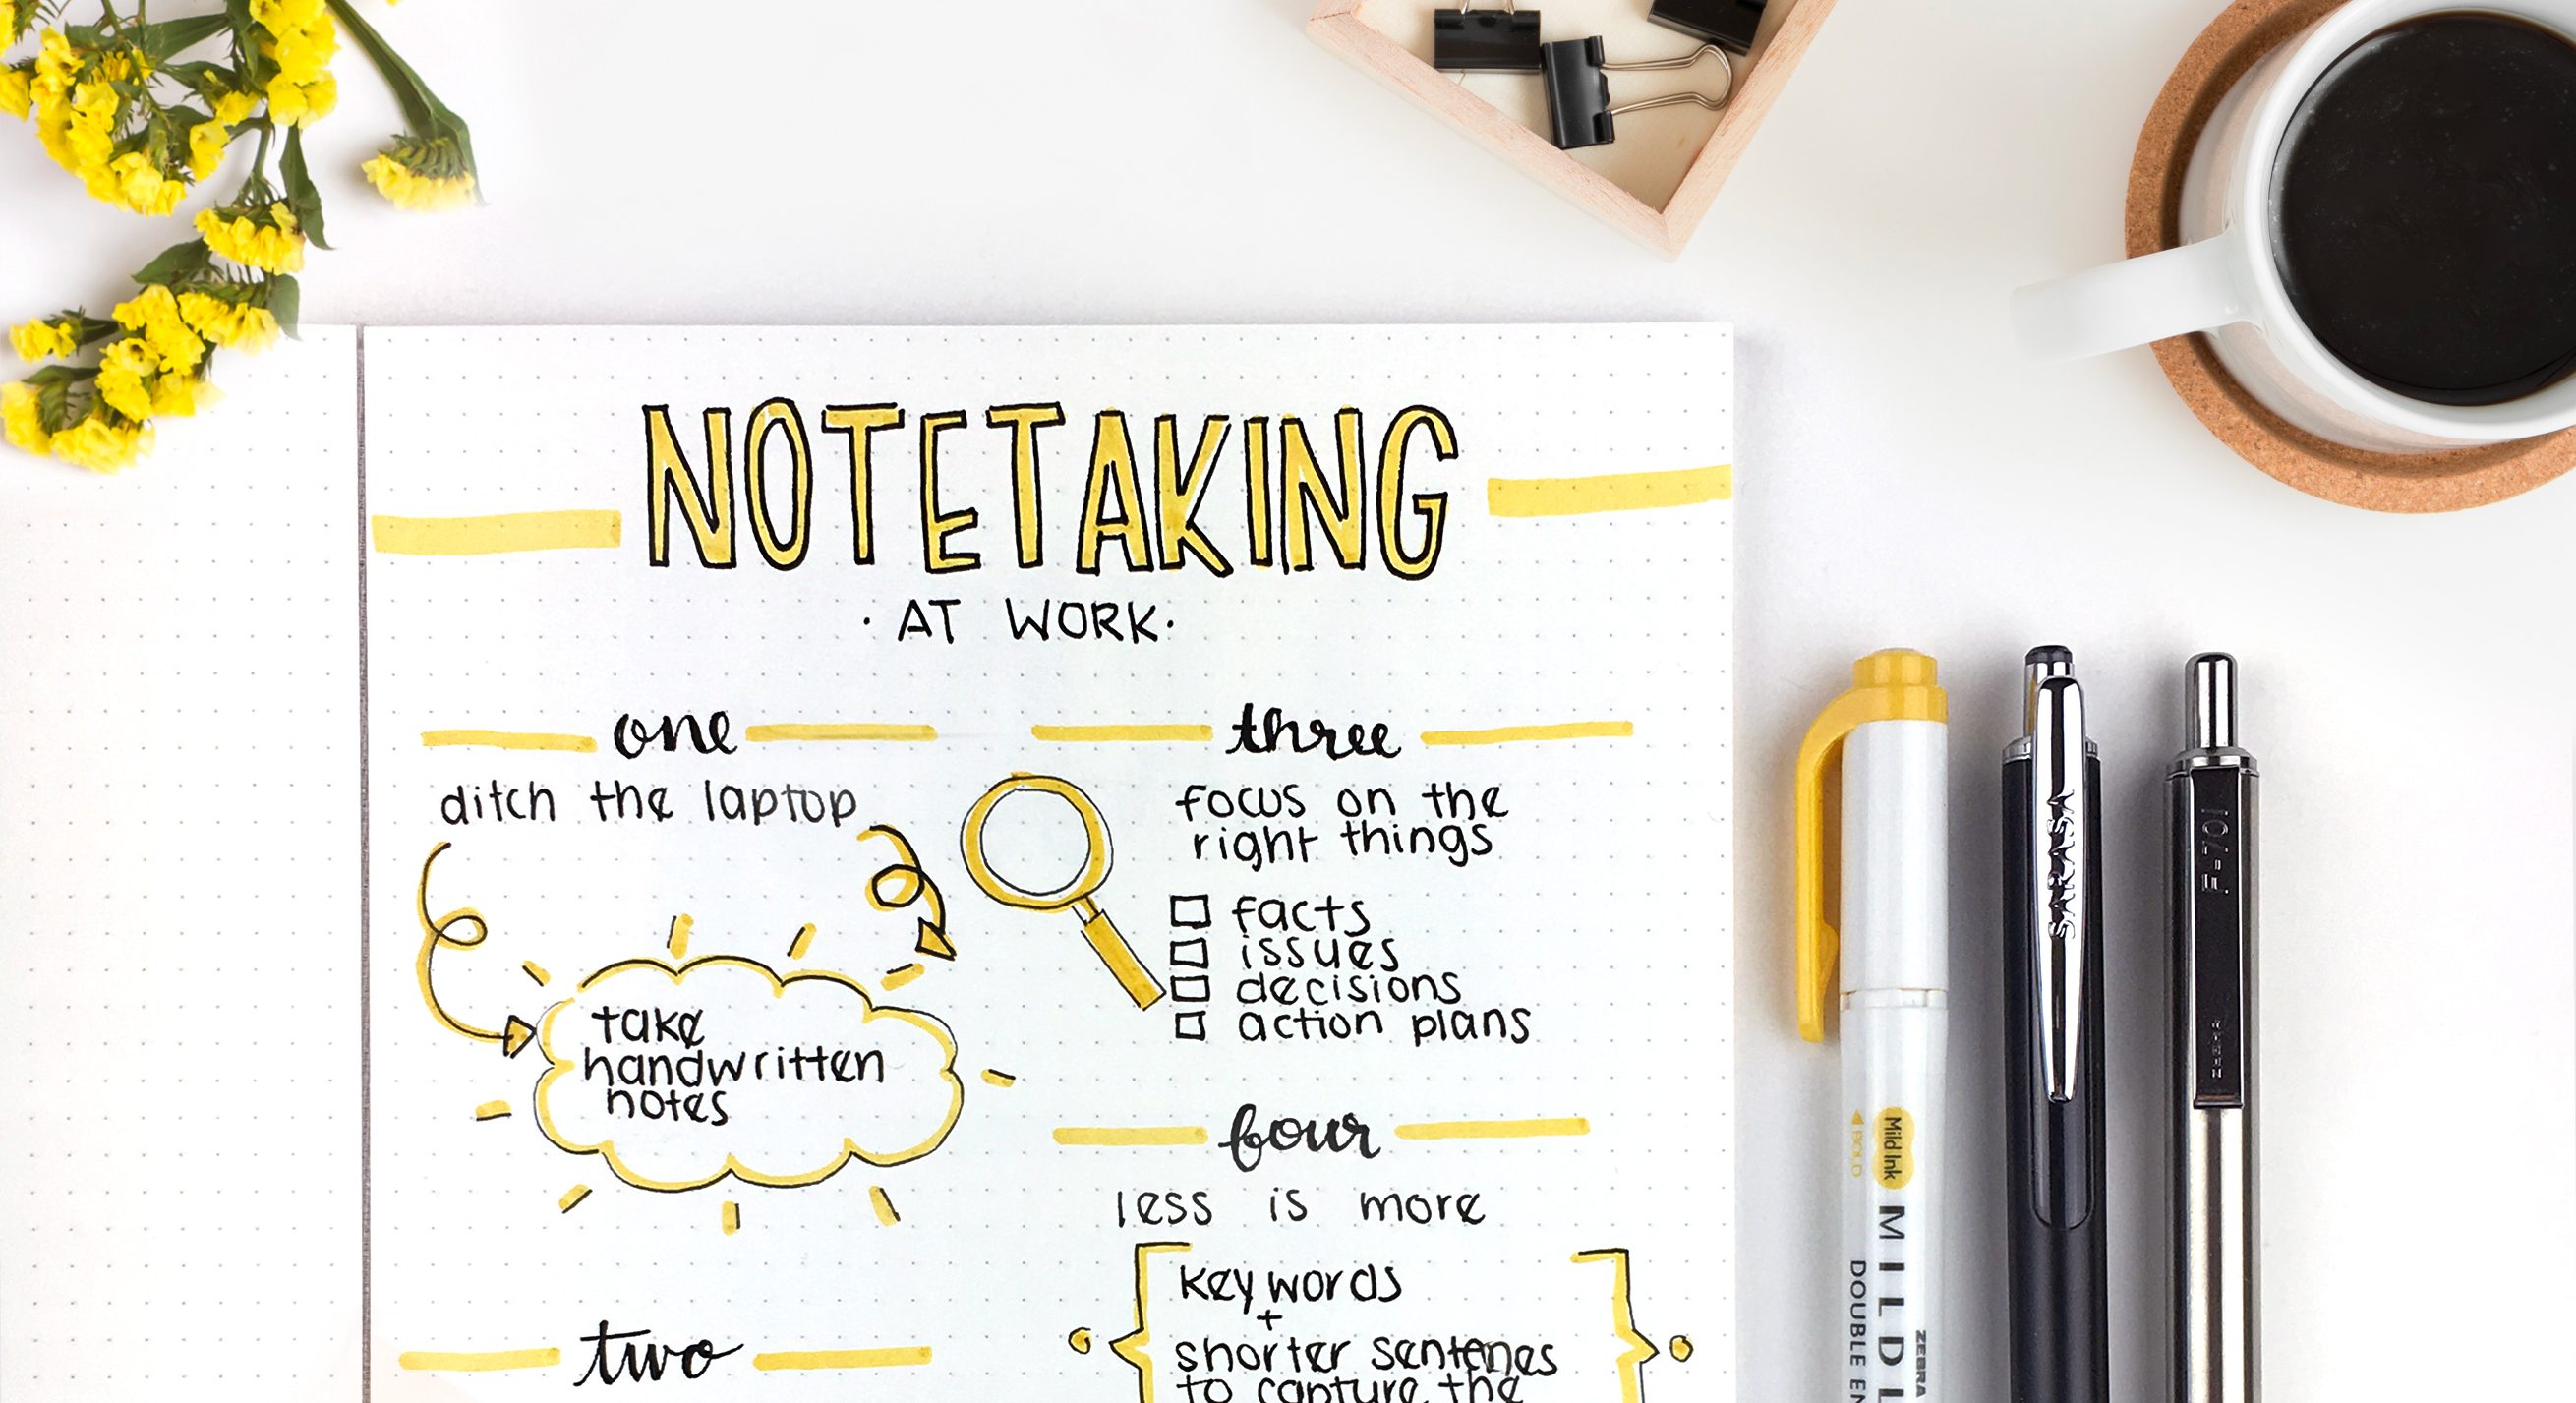 NOTETAKING
· AT WORK ·
one
ditch the laptop
take
handwritten
notes
two
three
focus on the
right things
facts
issues
decisions
action plans
four
less is more
key words
+
shorter sentences
to capture the
SARASA
F-701
ZEBRA
Mild Ink
BOLD
MILDL
DOUBLE EN
ZEBRA